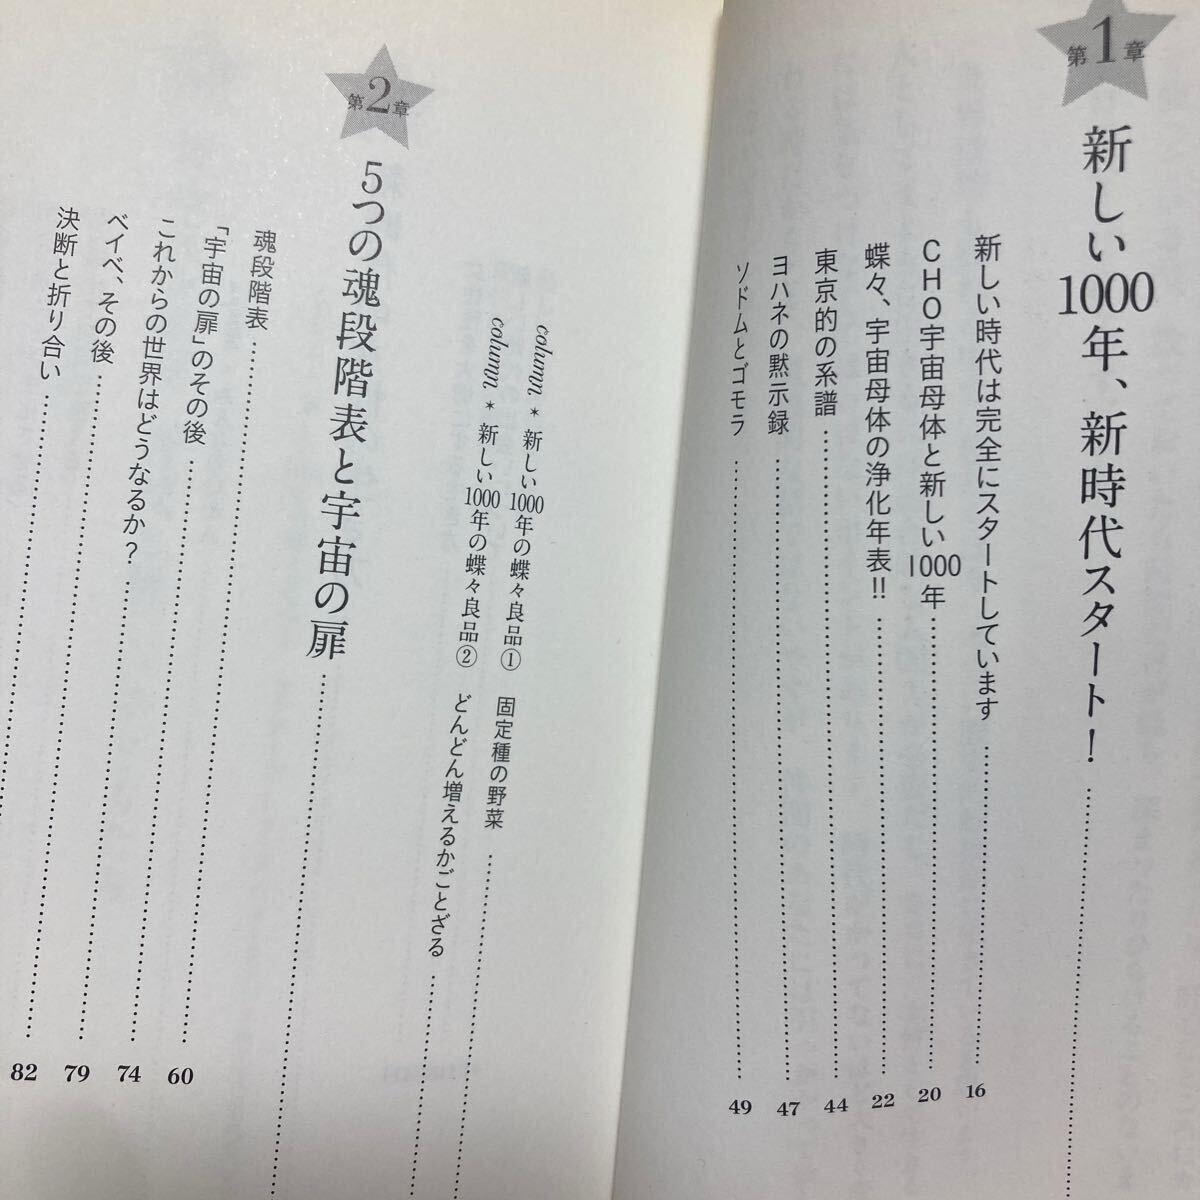 第1章
新しい1000年、新時代スタート!
新しい時代は完全にスタートしています 16
CHO宇宙母体と新しい1000年 20
蝶々、宇宙母体の浄化年表!! 22
東京的の系譜 44
ヨハネの黙示録 47
ソドムとゴモラ 49
column * 新しい1000年の蝶々良品① 固定種の野菜
column * 新しい1000年の蝶々良品② どんどん増えるかごとざる
第2章
5つの魂段階表と宇宙の扉
魂段階表
「宇宙の扉」のその後 60
これからの世界はどうなるか? 74
ベイベ、その後 79
決断と折り合い 82